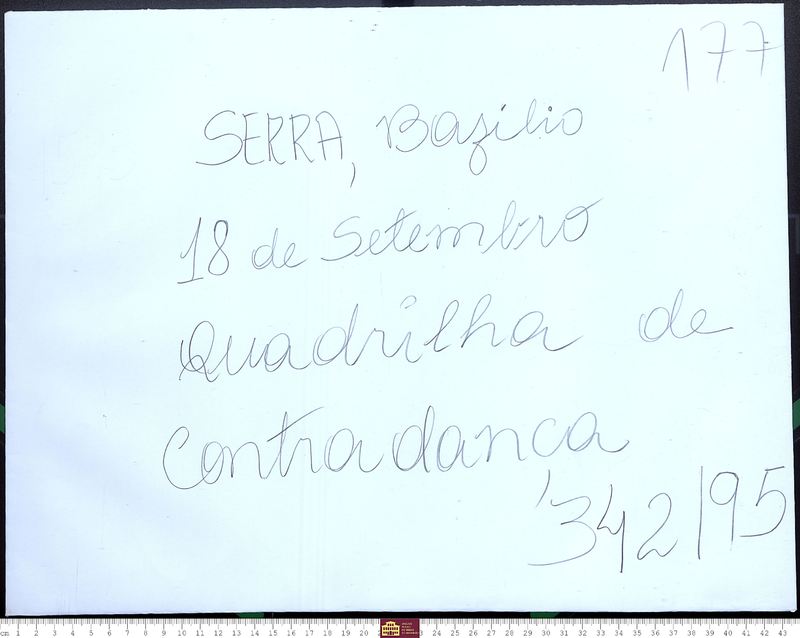 177
SERRA, Bazilio
18 de Setembro
Quadrilha de
Contradança
342/95
cm 1 2 3 4 5 6 7 8 9 10 11 12 13 14 15 16 17 18 19 20 23 24 25 26 27 28 29 30 31 32 33 34 35 36 37 38 39 40 41 42 43